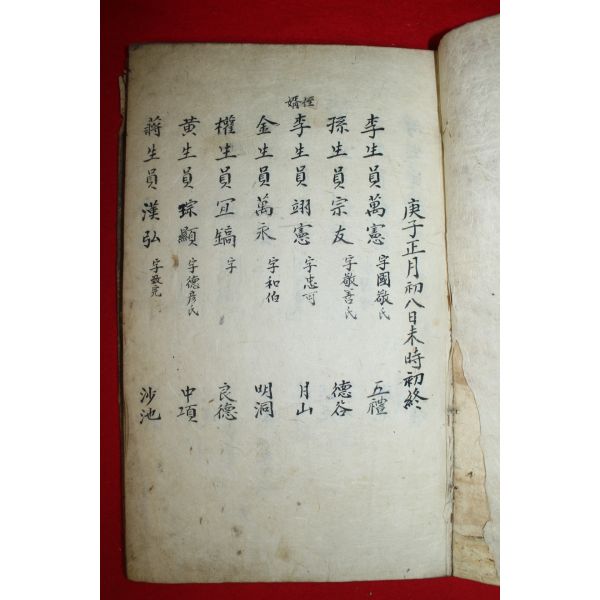 庚子正月初八日未時初終
李生員萬憲 字國敬氏 五禮
孫生員宗友 字敬善氏 德谷
姪婿
李生員翊憲 字忠可 月山
金生員萬永 字和伯 明洞
權生員宜鎬 字 良德
黃生員琮顯 字德彥氏 中項
蔣生員漢弘 字 沙池